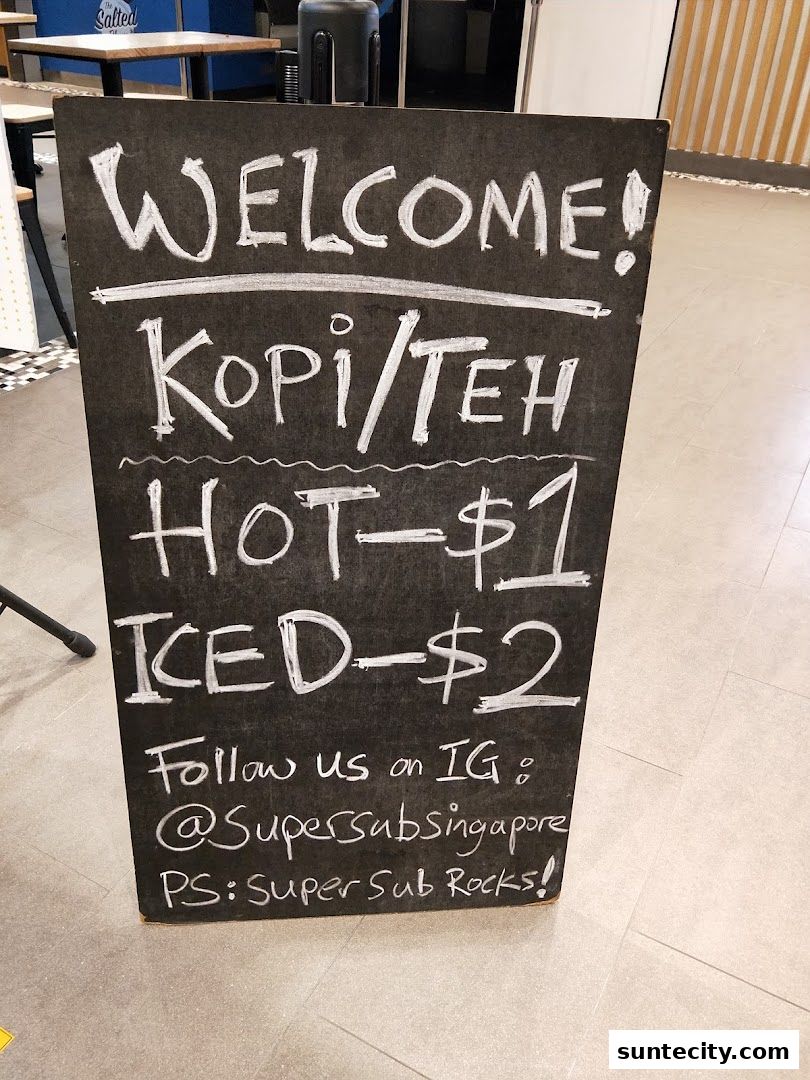 The
Salted
WELCOME!
KOPi/TEH
HOT-$1
ICED-$2
Follow us on IG:
@supersubsingapore
PS: Super Sub Rocks!
suntecity.com